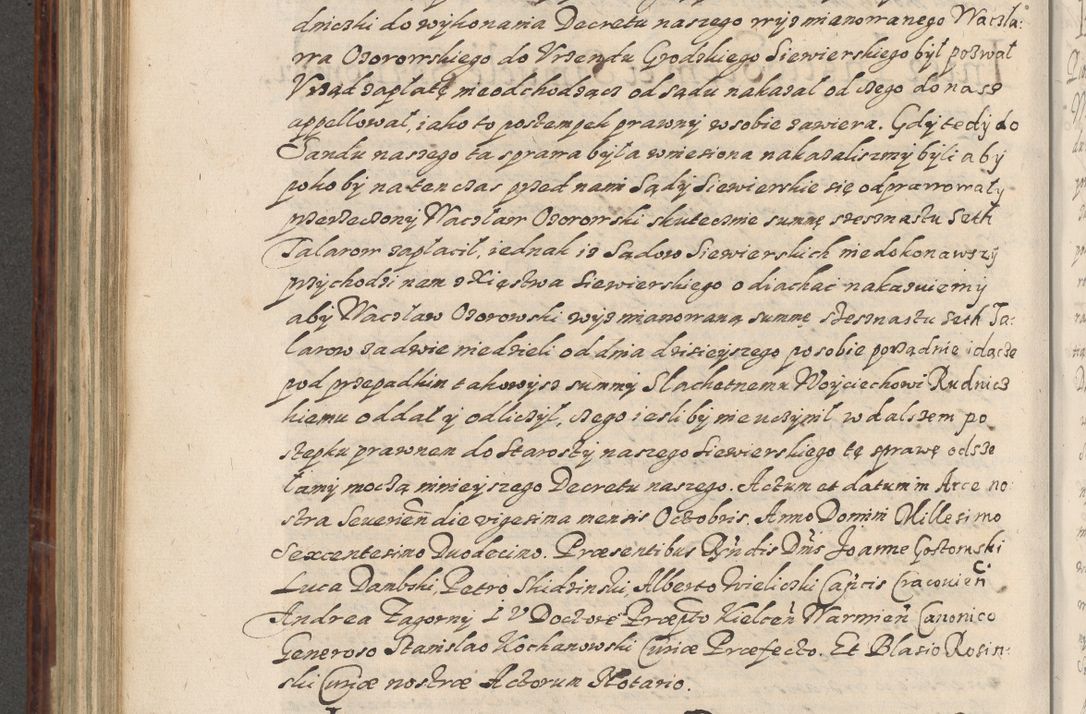 dniczki do wykonania Decretu naszego wyż mianowanego Waczła-
wa Ożorowskiego do Vrzendu Grodzkiego Siewierskiego był pozwał
Vrząd zapłatę nieodchodząc od sądu nakazał od czego do nasz
appellował, iako to postempek prawny w sobie zawiera. Gdy tedy do
Sandu naszego ta sprawa była wniesiona nakazaliszmy byli aby
poko by na ten czas przed nami Sądy Siewierskie się odprawowały
przerzeczony Waczław Ożorowski skutecznie summę szesznastu Seth
Talarow zapłacił, iednak iż Sądow Siewierskich niedokonawszy
przychodzi nam z Xięstwa Siewierskiego odiachać nakazuiemy
aby Waczław Ożorowski wyż mianowaną summę szesznastu seth Ta-
larow za dwie niedzieli od dnia dzisieyszego po sobie porządnie idącze
pod przepadkiem takowysz summy Slachetnemu Woyciechowi Rudnicz
kiemu oddał y odliczył, czego iesliby nie uczynił w dalszem po
stepku prawnem do Starosty naszego Siewierskiego tę sprawę odsze
łamy moczą ninieyszego Decretu naszego. Actum et datum in Arce no-
stra Severien̄ die vigesima mensis Octobris. Anno Domini Millesimo
Sexcentesimo Duodecimo. Præsentibus Rn̄dis Dn̄s Joanne Gostomski
Luca Dambski, Petro Skidzinski, Alberto Wieliczki Can̄cis Cracovien̄
Andrea Zagorny I V Doctore Præpto Kielcen̄ Warmien̄ Canonico
Generoso Stanislao Kochanowski Curiæ Præfecto. Et Blasio Rosin-
ski Curiæ nostræ Actorum Notario.